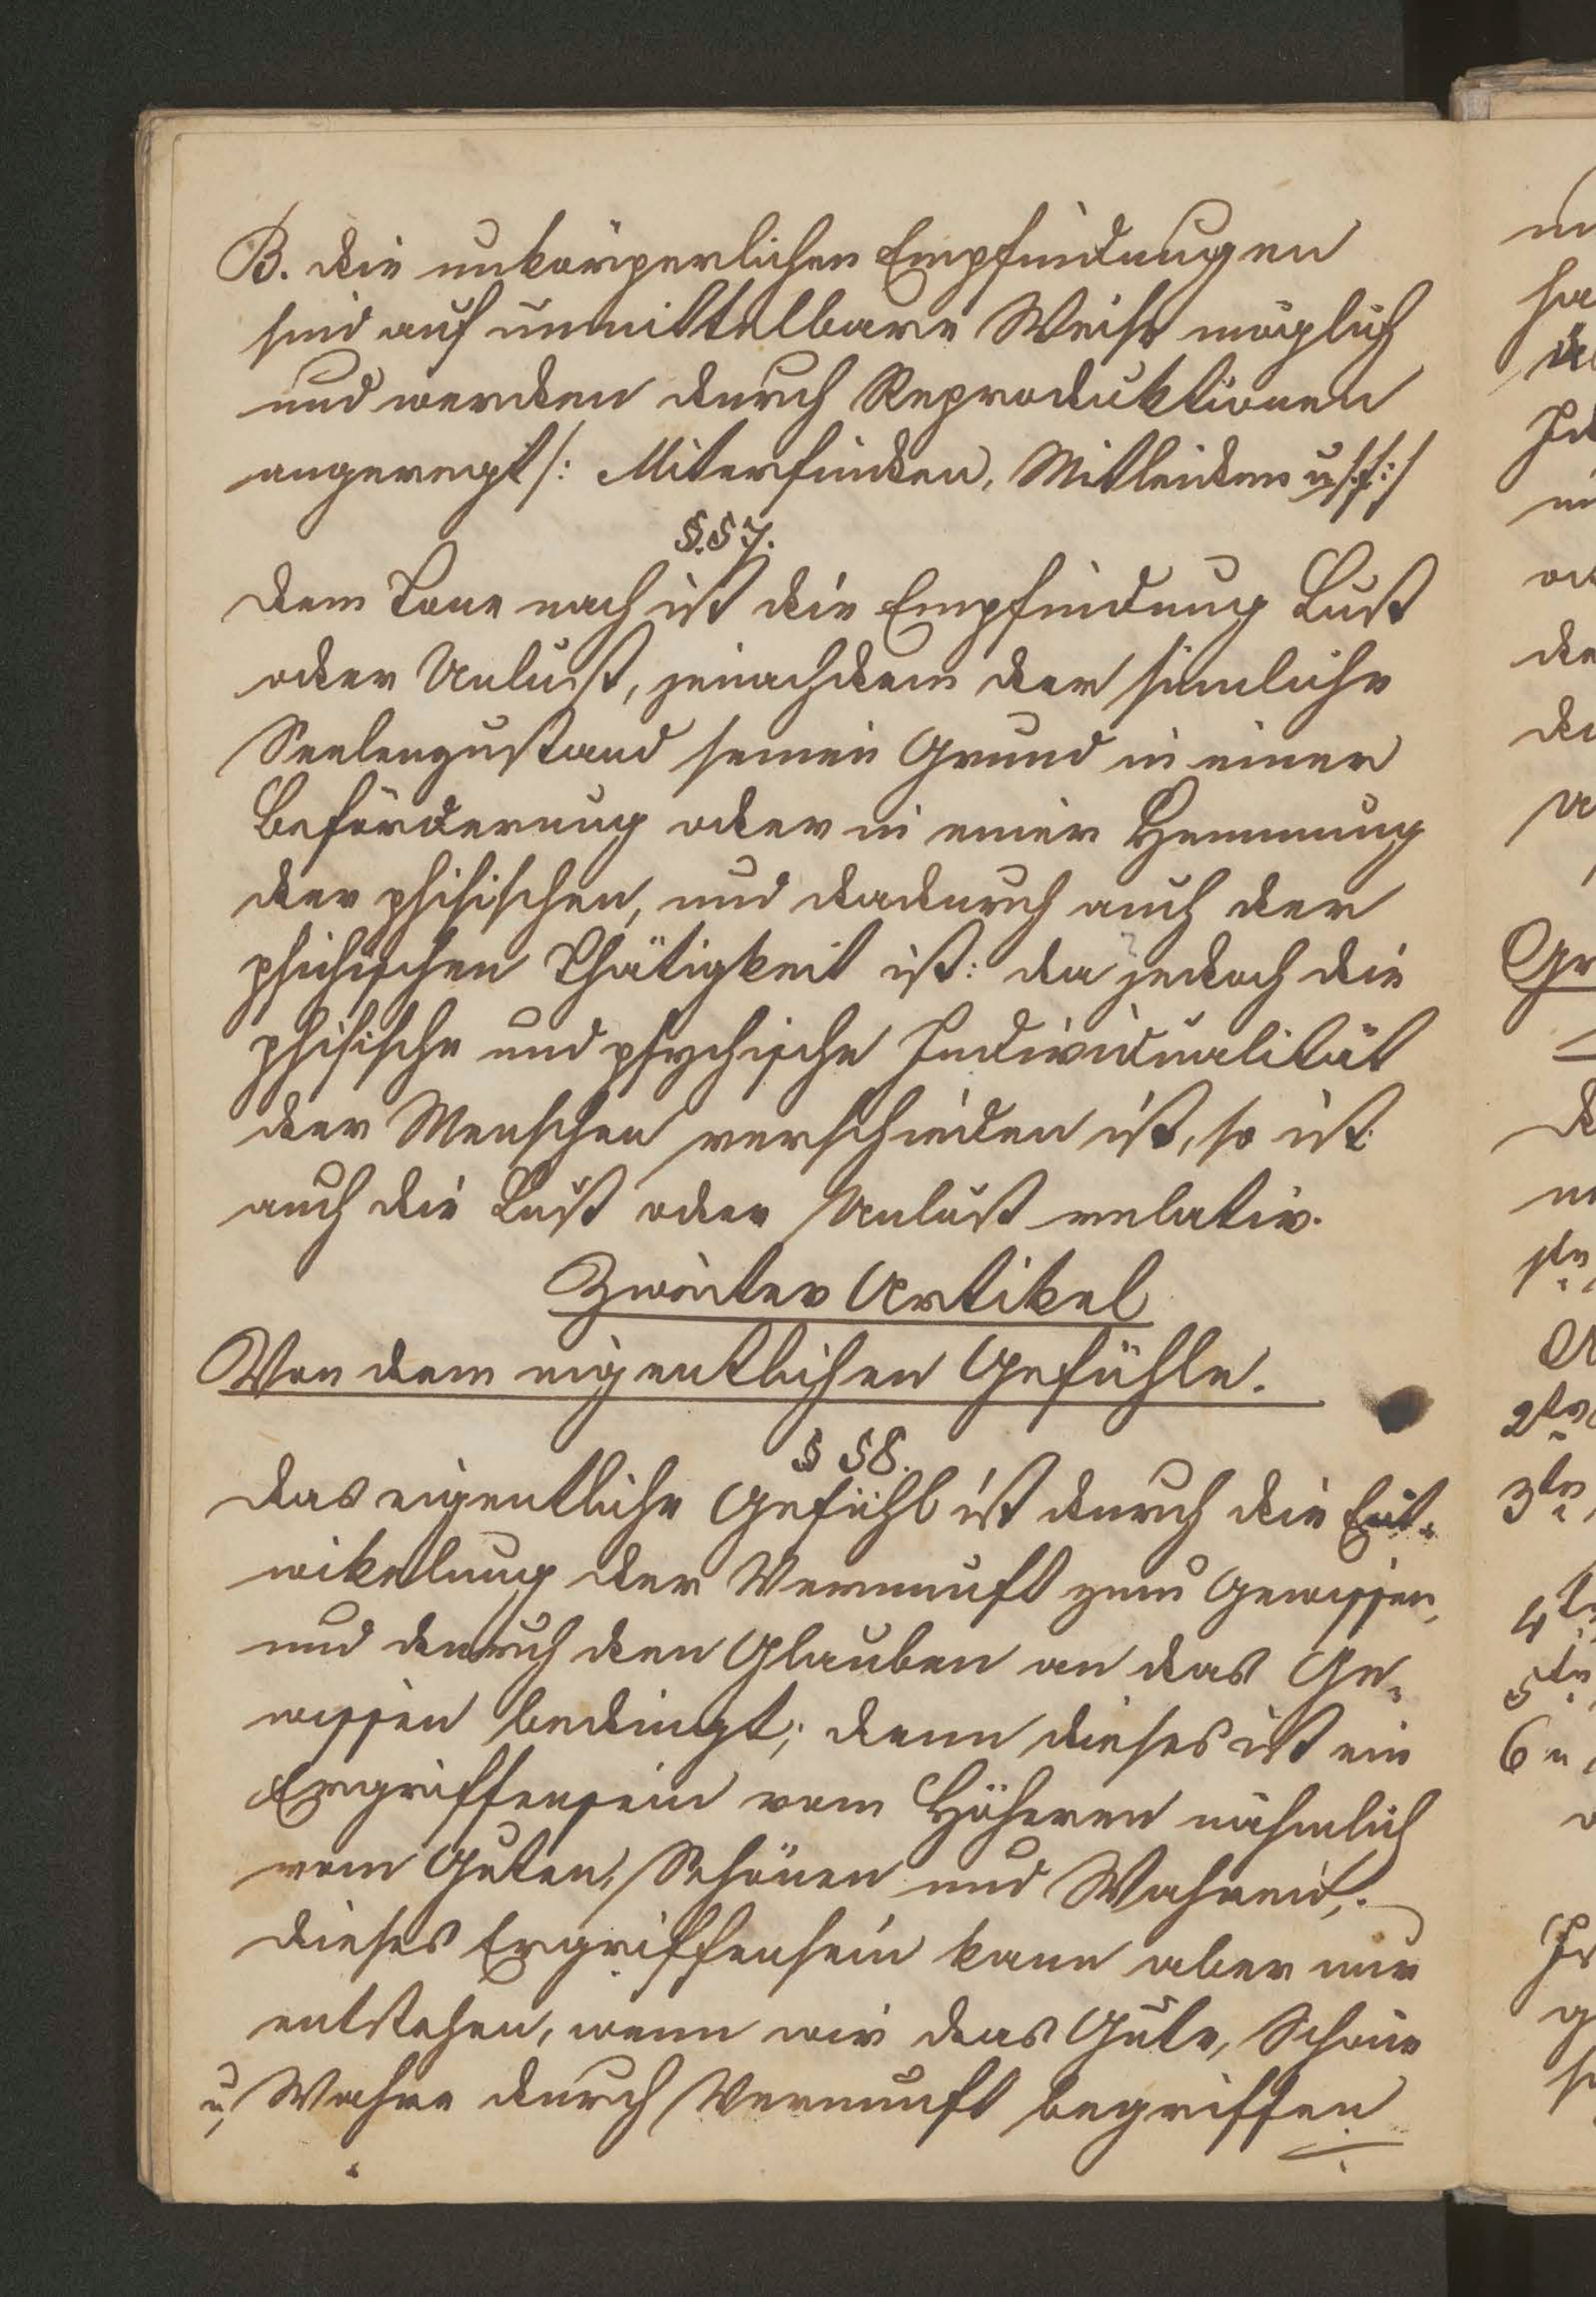 B. die unkörperlichen Empfindungen
sind auf unmittelbare Weise möglich
und werden durch Reproduktionen
angeregt /: Miterfinden, Mitleiden u.s.f: /
§.57.
dem Tone nach ist die Empfindung Lust
oder Unlust, jenachdem der sinnliche
Seelenzustand seinen Grund in einer
Beförderung oder in einer Hemmung
der phisischen, und dadurch auch der
phichischen Thätigkeit ist: da jedoch die
phisische und psychische Individualität
der Menschen verschieden ist, so ist
auch die Lust oder Unlust relativ.
Zweiter Artikel
Von dem eigentlichen Gefühle.
§ 58.
das eigentliche Gefühl ist durch die Ent-
wikelung der Vernunft zum Gewissen,
und durch den Glauben an das Ge-
wissen bedingt; denn dieses ist ein
Ergriffensein vom Höheren nähmlich
vom Guten, Schönen und Wahren;
dieses Ergriffensein kann aber nur
entstehen, wenn wir das Gute, Schöne
u, Wahre durch Vernunft begriffen